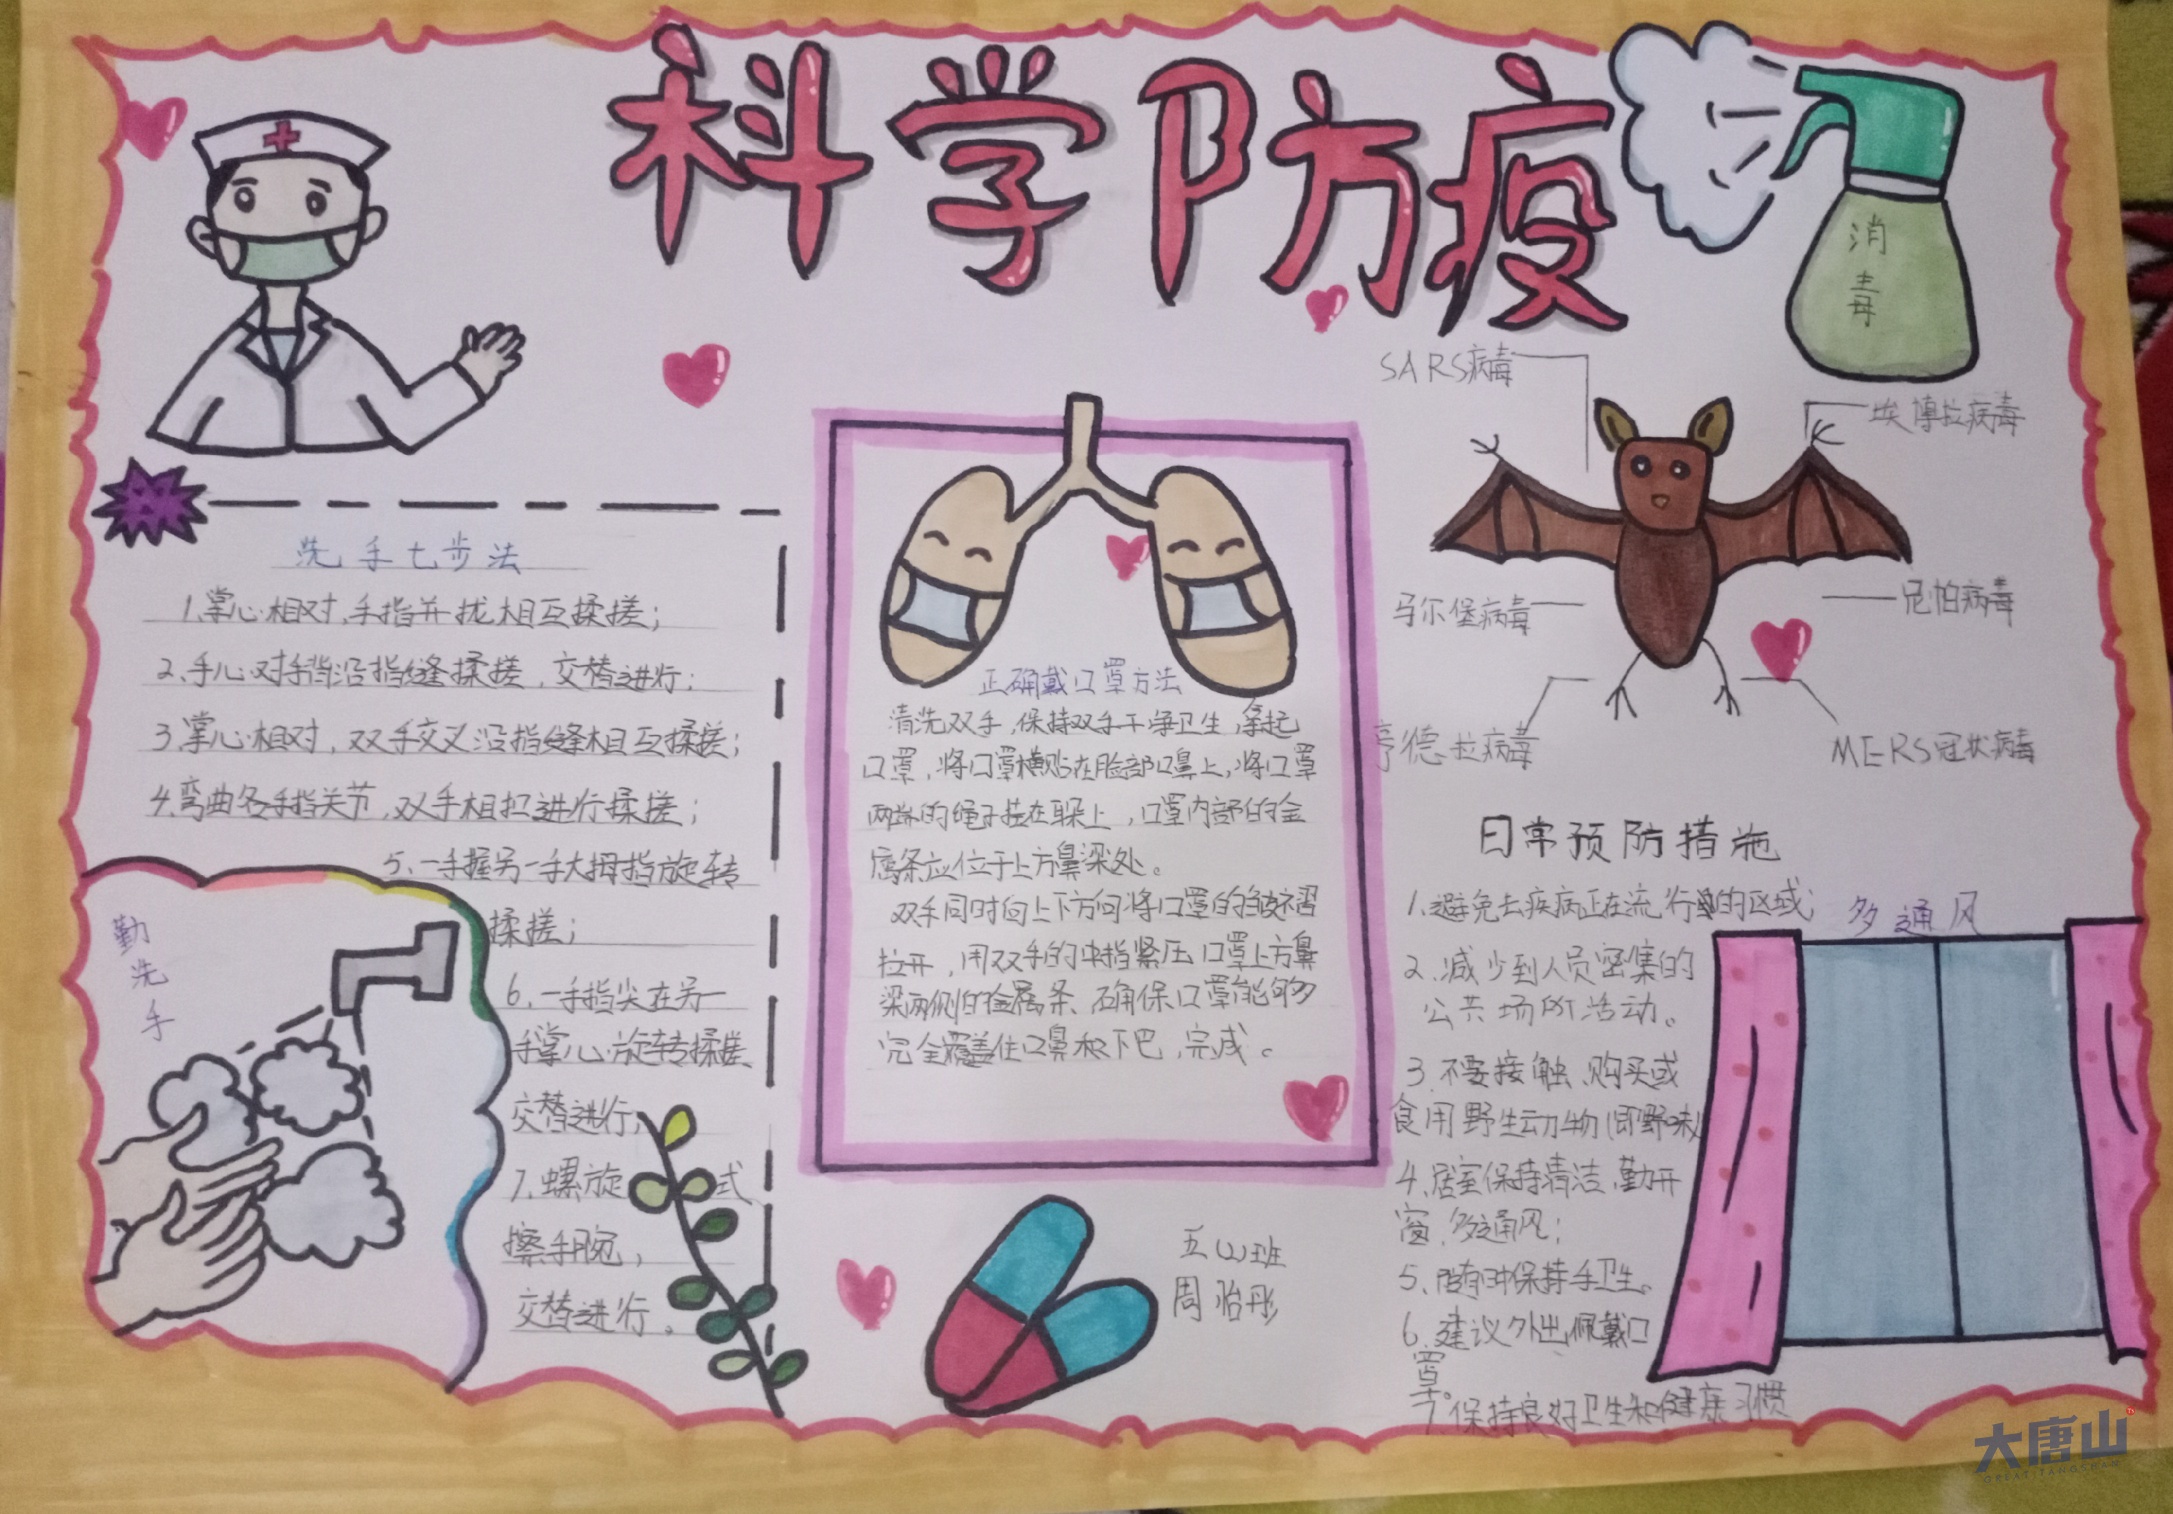 科学防疫
消
毒
SARS病毒
埃博拉病毒
马尔堡病毒
尼帕病毒
亨德拉病毒
MERS冠状病毒
洗手七步法
1.掌心相对,手指并拢相互揉搓；
2.手心对手背沿指缝揉搓,交替进行；
3.掌心相对,双手交叉沿指缝相互揉搓；
4.弯曲各手指关节,双手相扣进行揉搓；
5.一手握另一手大拇指旋转
揉搓；
6.一手指尖在另一
手掌心旋转揉搓、
交替进行；
7.螺旋式
擦手腕,
交替进行。
勤
洗
手
正确戴口罩方法
清洗双手,保持双手干净卫生,拿起
口罩,将口罩横贴在脸部口鼻上,将口罩
两端的绳子挂在耳朵上,口罩内部的金
属条应位于上方鼻梁处。
双手同时向上下方向将口罩的皱褶
拉开,用双手的中指紧压口罩上方鼻
梁两侧的金属条,确保口罩能够
完全覆盖住口鼻和下巴,完成。
五(2)班
周怡彤
日常预防措施
1.避免去疾病正在流行的区域；
2.减少到人员密集的
公共场所活动。
3.不要接触、购买或
食用野生动物(即野味)
4.居室保持清洁,勤开
窗,多通风；
5.随时保持手卫生。
6.建议外出佩戴口
罩。
7.保持良好卫生和健康习惯
多通风
大唐山
GREATTANGSHAN